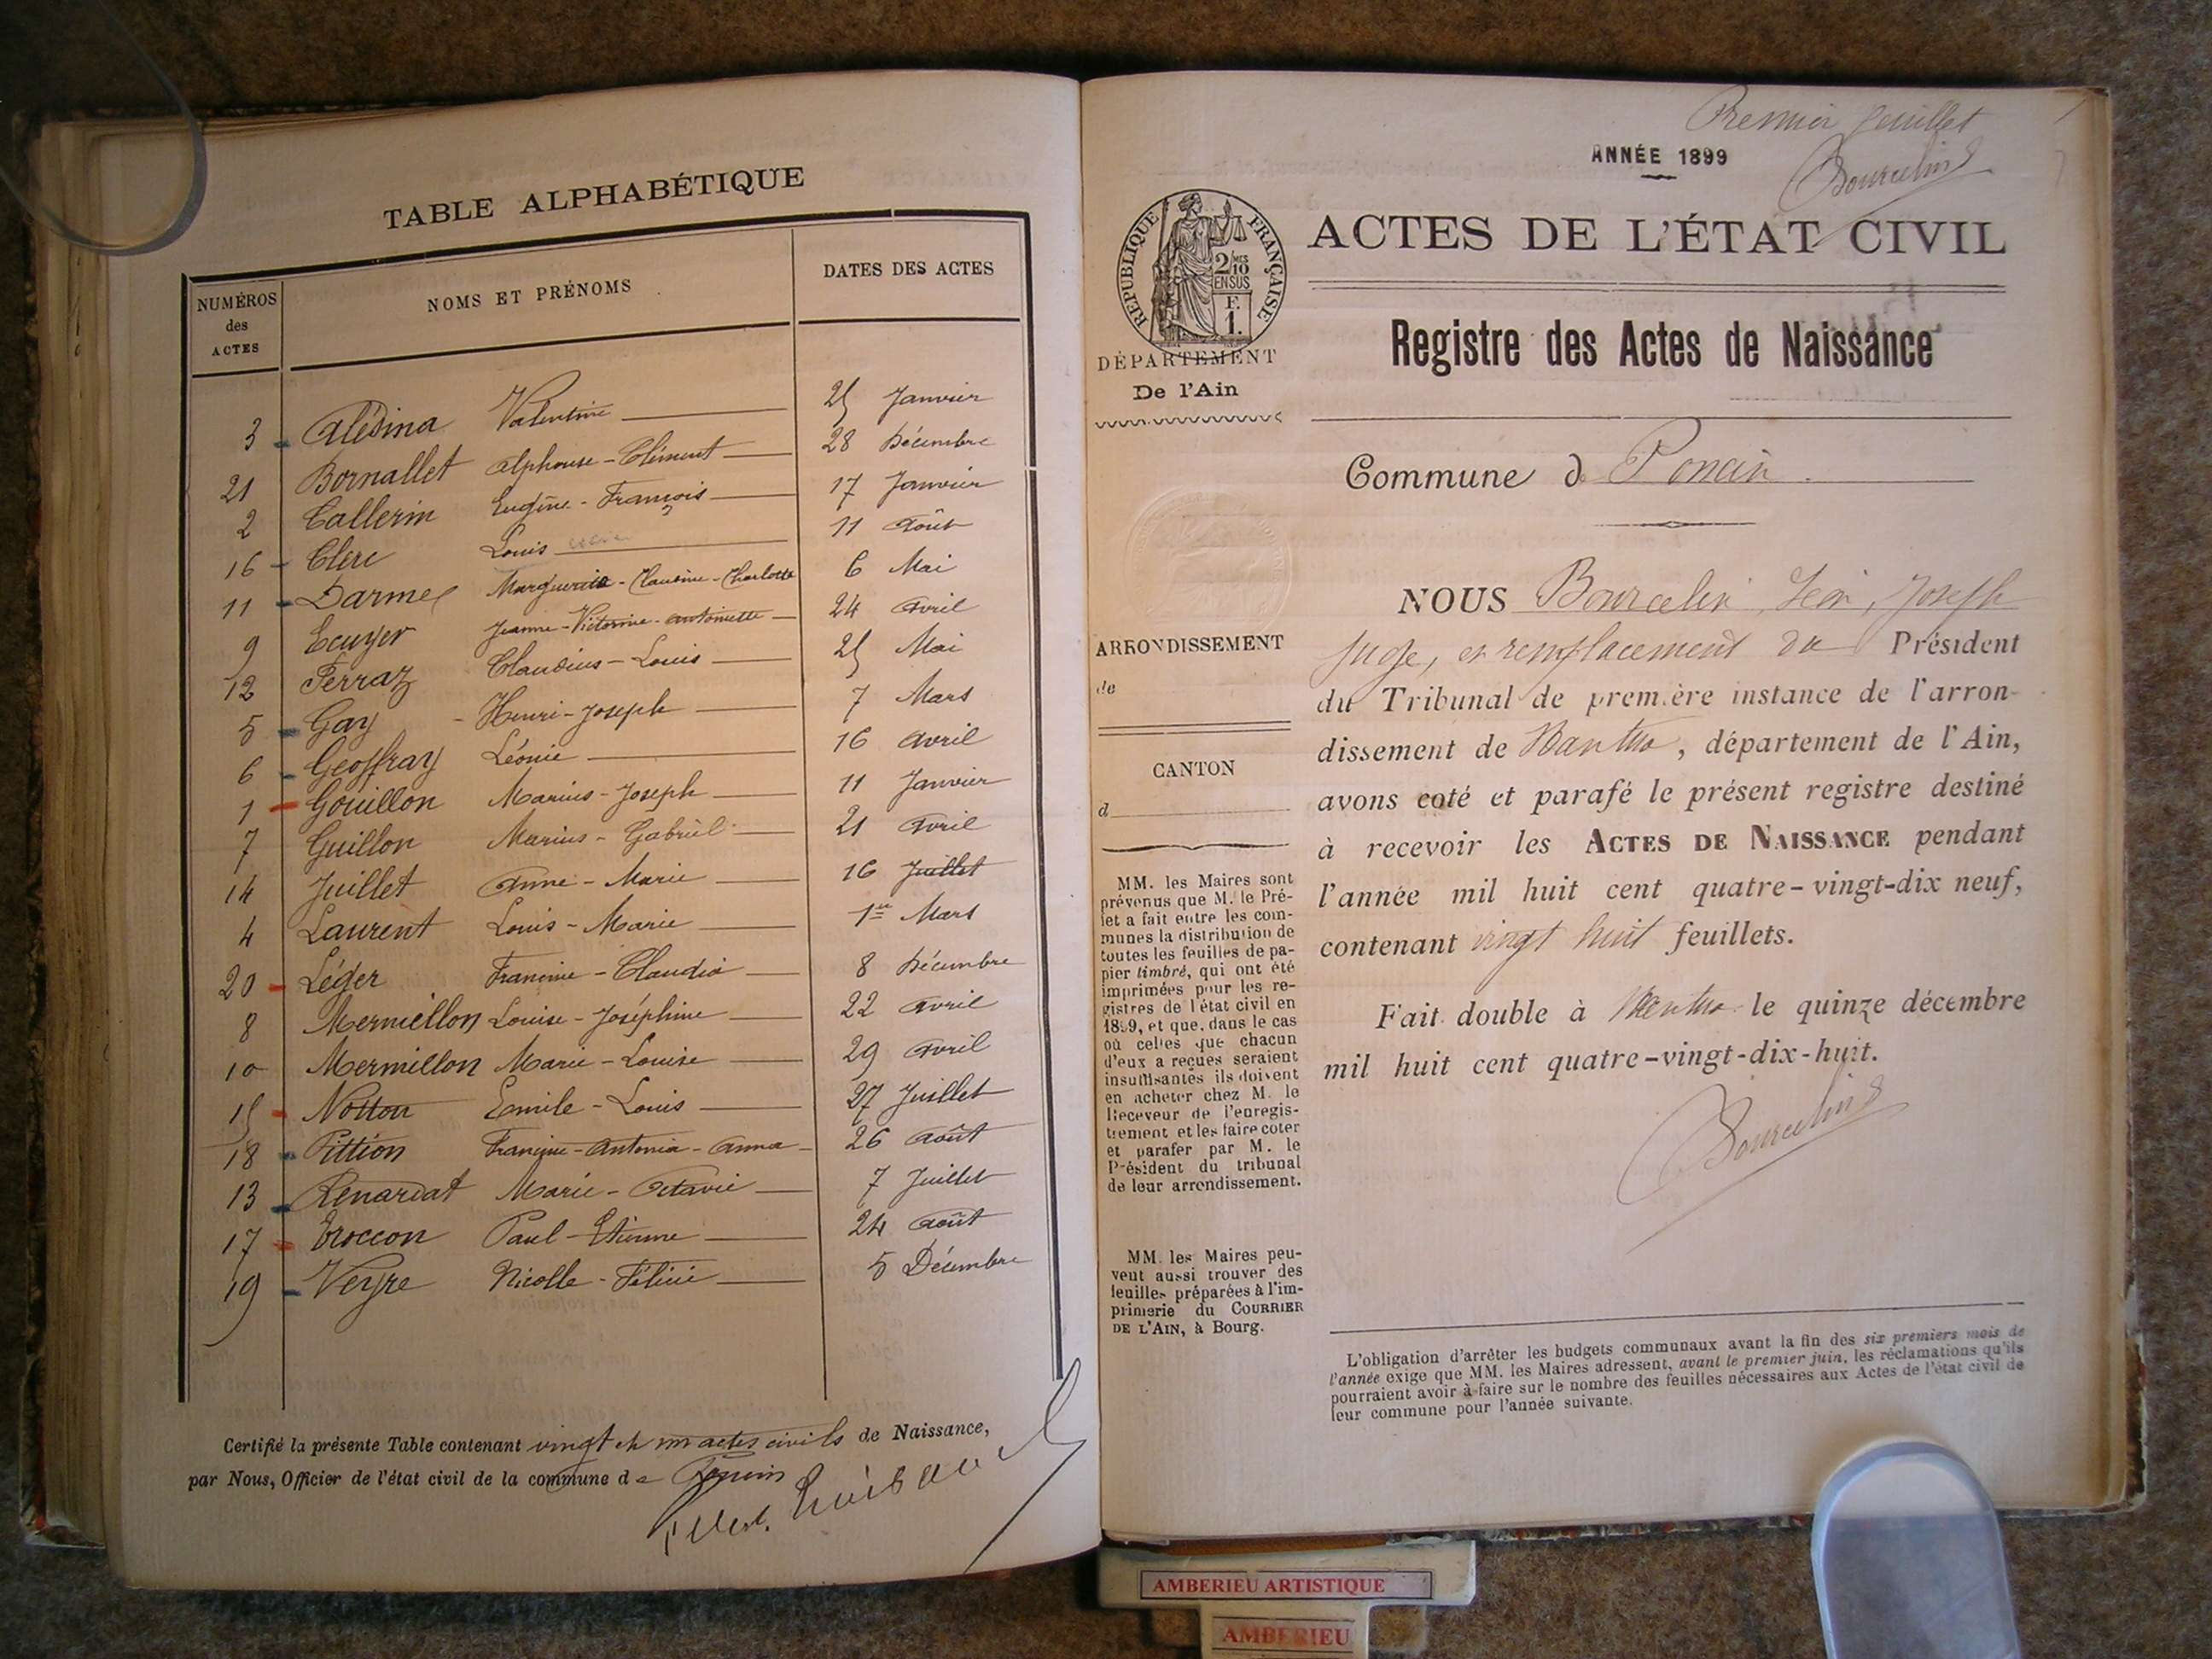 TABLE ALPHABÉTIQUE
NUMÉROS des ACTES NOMS ET PRÉNOMS DATES DES ACTES
3 Alésina Valentine 25 Janvier
21 Bornallet Alphonse-Clément 28 Décembre
2 Callerin Eugène-François 17 Janvier
16 Clerc Louis 11 Août
11 Darmes Marguerite-Claudine-Charlotte 6 Mai
9 Ecuyer Jeanne-Victorine-Antoinette 24 Avril
12 Ferraz Claudius-Louis 25 Mai
5 Gay Henri-Joseph 7 Mars
6 Geoffray Léonie 16 Avril
1 Gouillon Marius-Joseph 11 Janvier
7 Guillon Marius-Gabriel 21 Avril
14 Juillet Anne-Marie 16 Juillet
4 Laurent Louis-Marie 1er Mars
20 Léger Francine-Claudia 8 Décembre
8 Mermillon Louise-Joséphine 22 Avril
10 Mermillon Marie-Louise 29 Avril
15 Notton Emile-Louis 27 Juillet
18 Pittion Francine-Antonia-Anna 26 Août
13 Renardat Marie-Octavie 7 Juillet
17 Troccon Paul-Etienne 24 Août
19 Veyre Nicolle-Félicie 5 Décembre
Certifié la présente Table contenant vingt et un actes civils de Naissance,
par Nous, Officier de l'état civil de la commune de Poncin
Premier feuillet
ANNÉE 1899
Bourcelin
RÉPUBLIQUE FRANÇAISE
2/10MES
EN SUS
F.
1.
ACTES DE L'ÉTAT CIVIL
DÉPARTEMENT
De l'Ain
Registre des Actes de Naissance
Commune d Poncin.
ARRONDISSEMENT
de
CANTON
d
MM. les Maires sont
prévenus que M. le Pré-
fet a fait entre les com-
munes la distribution de
toutes les feuilles de pa-
pier timbré, qui ont été
imprimées pour les re-
gistres de l'état civil en
1899, et que, dans le cas
où celles que chacun
d'eux a reçues seraient
insuffisantes ils doivent
en acheter chez M. le
Receveur de l'enregis-
trement et les faire coter
et parafer par M. le
Président du tribunal
de leur arrondissement.
MM. les Maires peu-
vent aussi trouver des
feuilles préparées à l'im-
primerie du COURRIER
DE L'AIN, à Bourg.
NOUS Bourcelin, Léon, Joseph
juge, en remplacement du Président
du Tribunal de première instance de l'arron-
dissement de Nantua, département de l'Ain,
avons coté et parafé le présent registre destiné
à recevoir les ACTES DE NAISSANCE pendant
l'année mil huit cent quatre-vingt-dix neuf,
contenant vingt huit feuillets.
Fait double à Nantua le quinze décembre
mil huit cent quatre-vingt-dix-huit.
Bourcelin
L'obligation d'arrêter les budgets communaux avant la fin des six premiers mois de
l'année exige que MM. les Maires adressent, avant le premier juin, les réclamations qu'ils
pourraient avoir à faire sur le nombre des feuilles nécessaires aux Actes de l'état civil de
leur commune pour l'année suivante.
AMBERIEU ARTISTIQUE
AMBERIEU